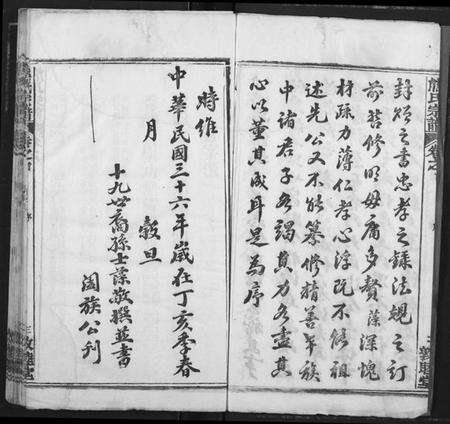 封頌之書忠孝之録法規之訂
前哲修明毋庸多贅藻深愧
材疏力薄仁孝心浮既不能祖
述先公又不能纂修精善年族
中諸君子各竭其力各盡其
心以董其成耳是為序
時維
中華民國三十六年歲在丁亥季春
月 穀旦
十九世裔孫士藻敬撰並書
闔族公刊